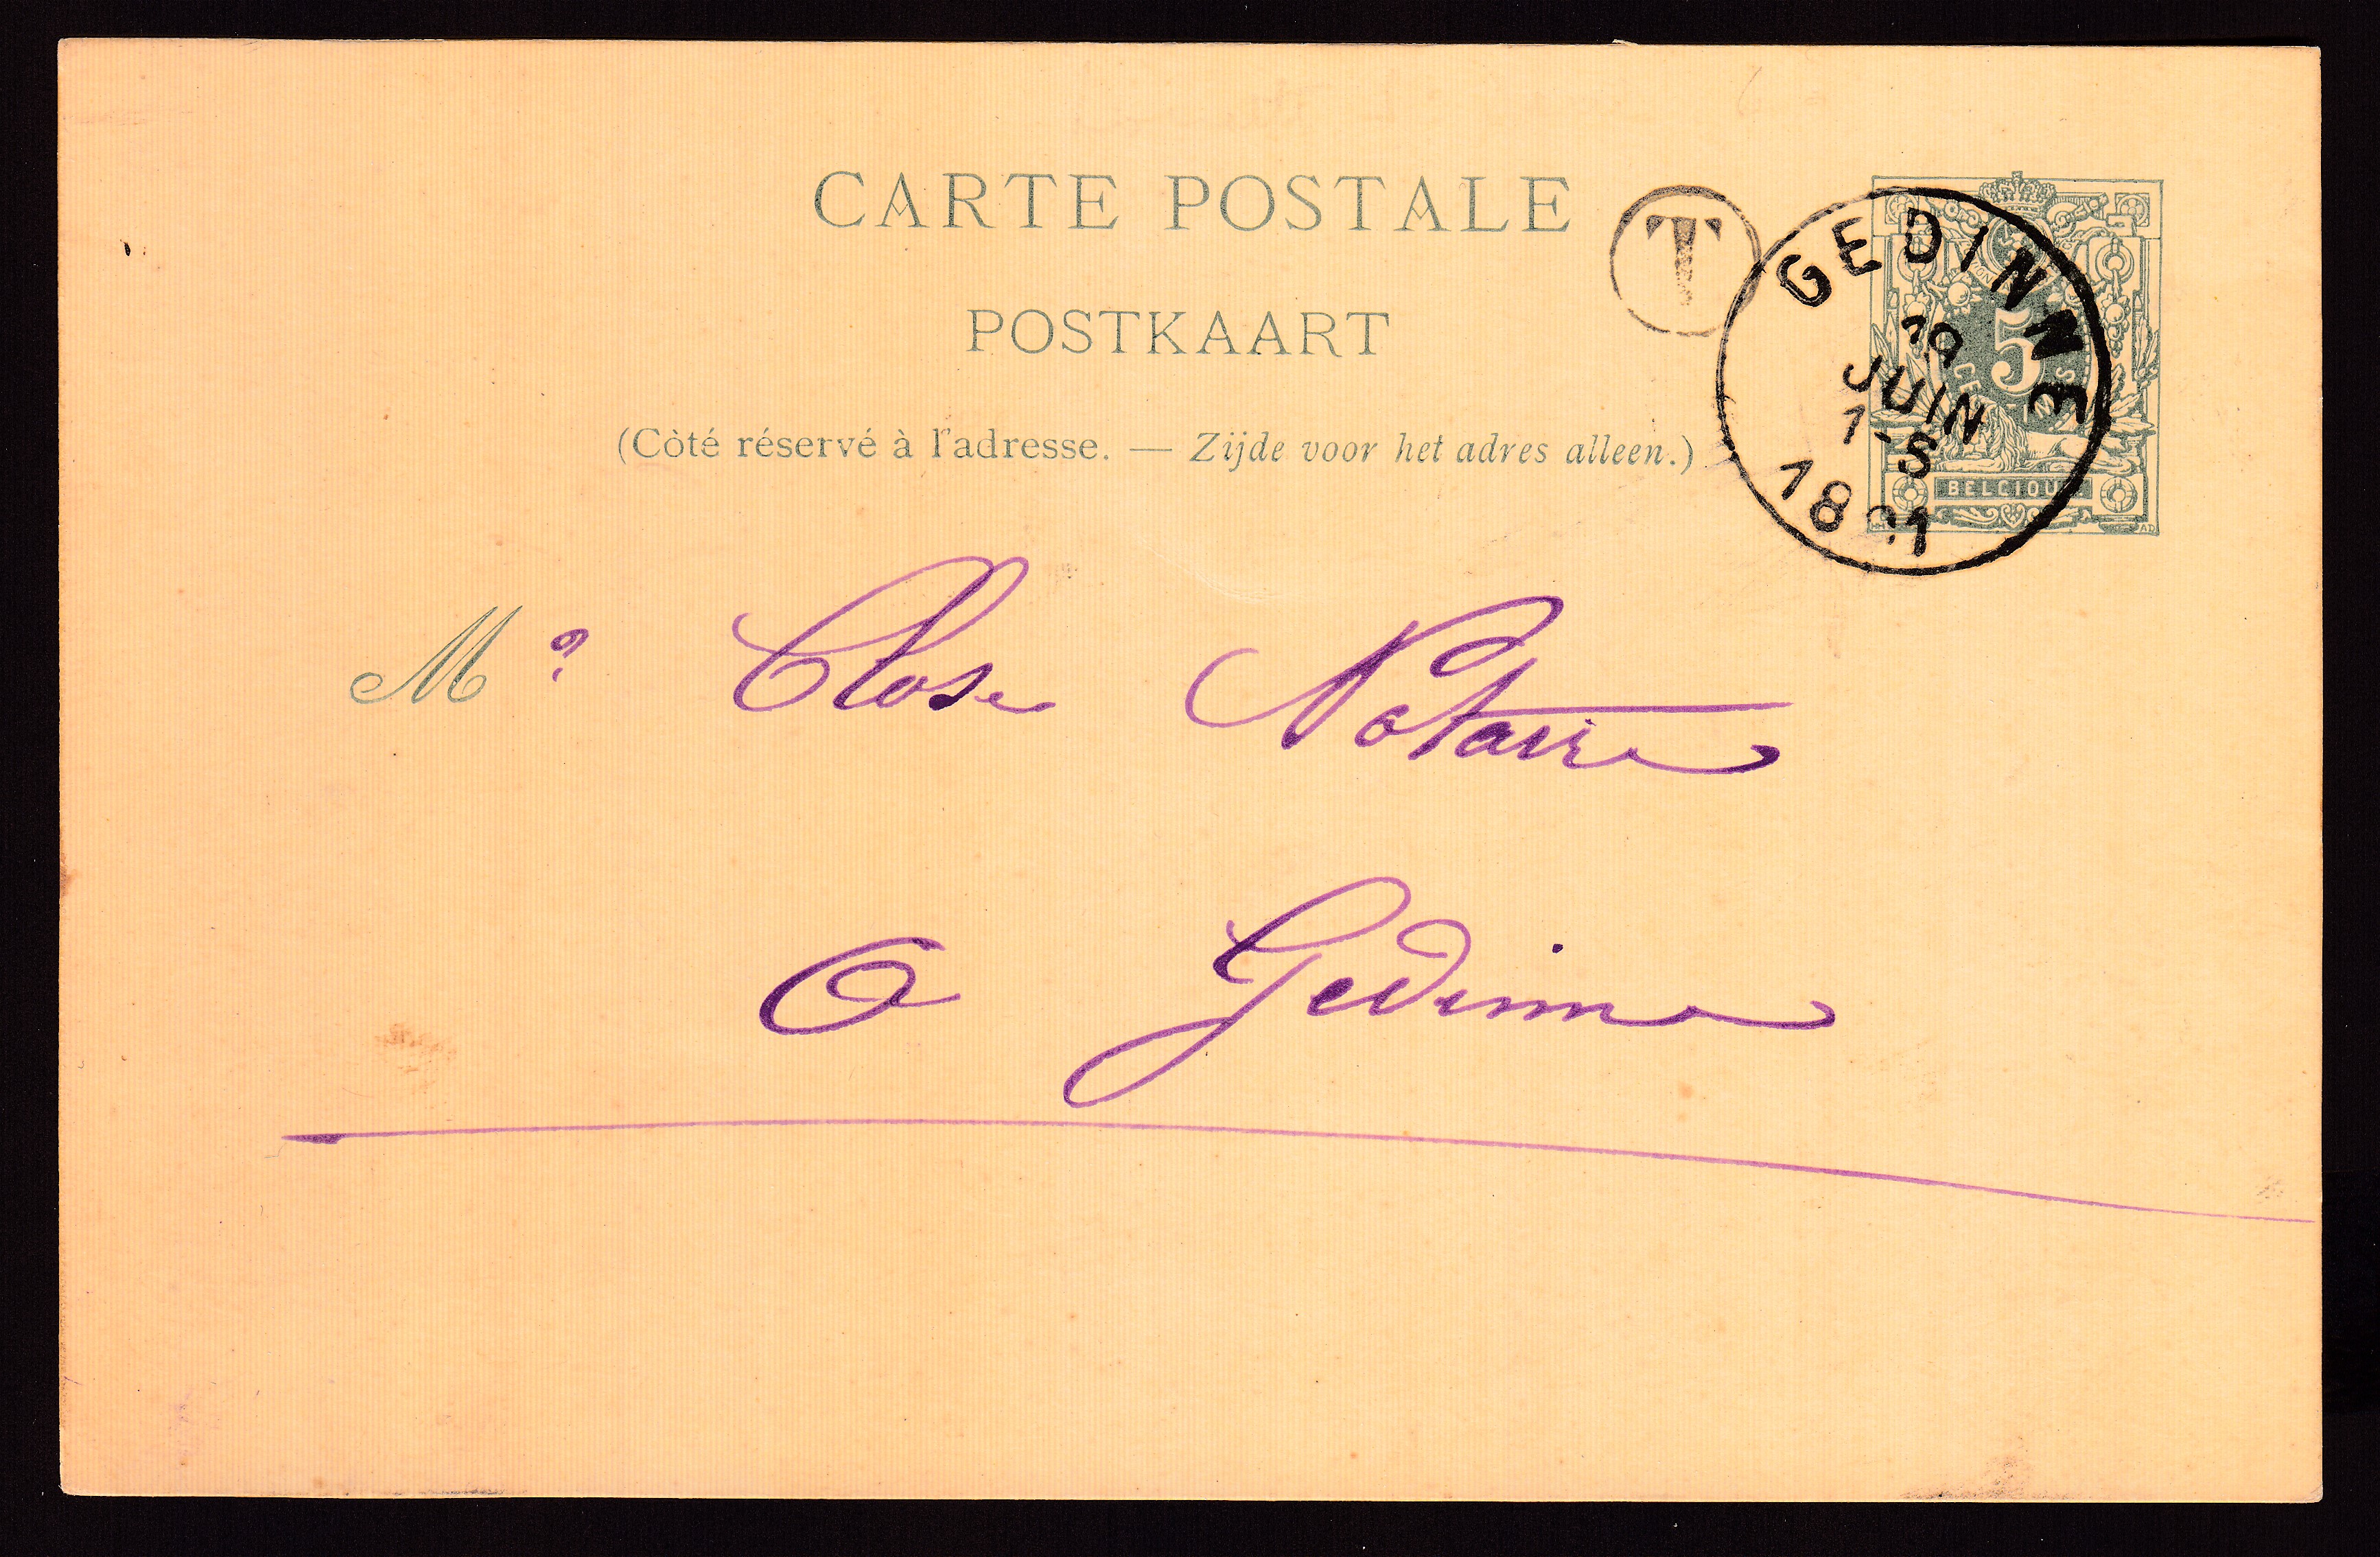 CARTE POSTALE
POSTKAART
(Côté réservé à l'adresse. — Zijde voor het adres alleen.)
T
GEDINNE
19
JUIN
1-S
1891
5
BELGIQUE
Mr Close Notaire
à Gedinne